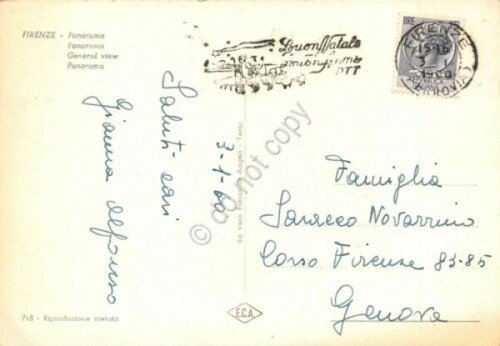 FIRENZE - Panorama
Panorama
General view
Panorama
Buon Natale
Buon Anno
PTT
FIRENZE
FERROVIA
Saluti cari
3-1-60
Gianna Alfonso
Famiglia
Saracco Novarrino
Corso Firenze 83-85
Genova
748 - Riproduzione vietata
E.C.A.
do not copy